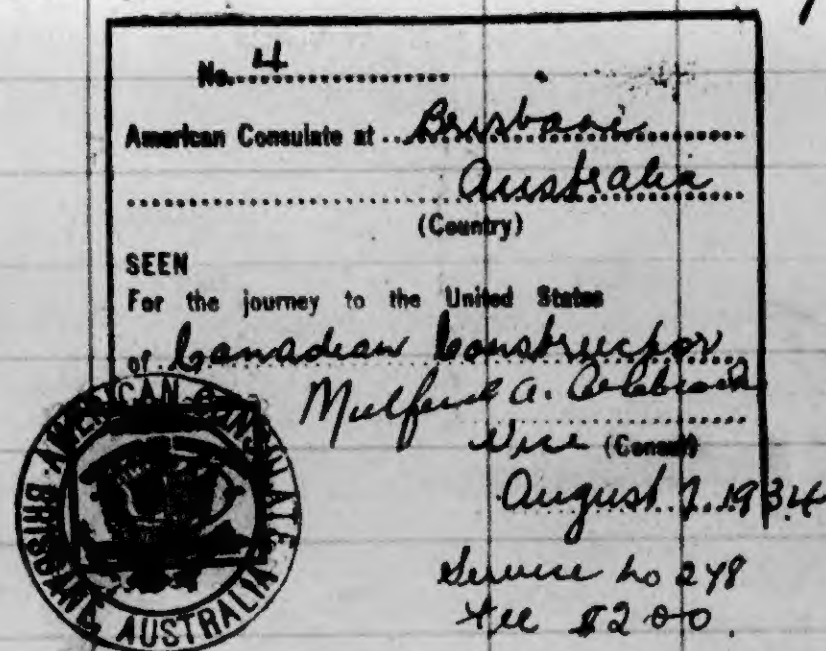 No. 4
American Consulate at Brisbane
Australia
(Country)
SEEN
For the journey to the United States
of Canadian Constructor
A.
Vice (Consul)
August 7. 1934
Service No 278
Fee $2.00.
AMERICAN CONSULATE
BRISBANE, AUSTRALIA